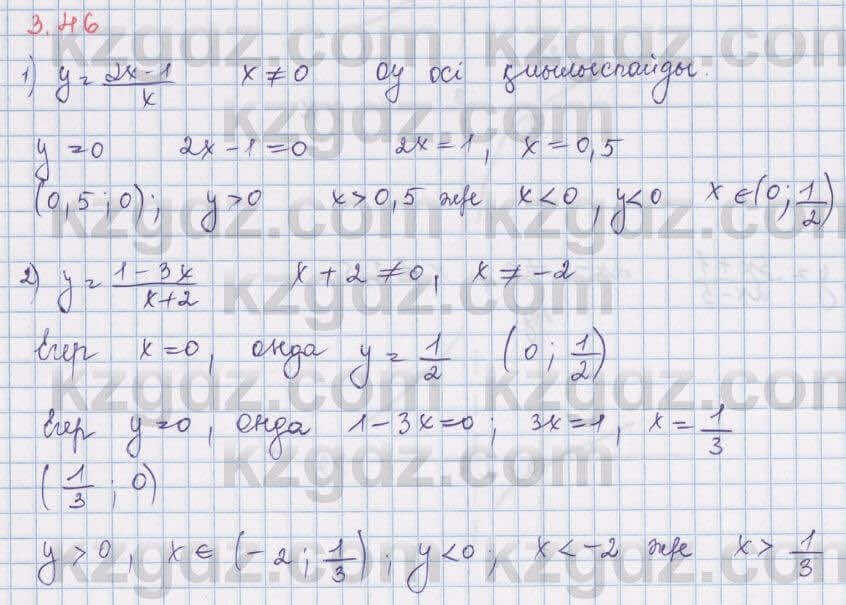 3.46
1) y = (2x-1)/x x ≠ 0 Oy осі қиылыспайды.
y = 0 2x-1=0 2x=1, x=0,5
(0,5; 0); y>0 x>0,5 және x<0, y<0 x∈(0; 1/2)
2) y = (1-3x)/(x+2) x+2≠0, x≠-2
Егер x=0, онда y = 1/2 (0; 1/2)
Егер y=0, онда 1-3x=0; 3x=1, x = 1/3
(1/3; 0)
y>0, x∈(-2; 1/3); y<0; x<-2 және x> 1/3
kzgdz.com